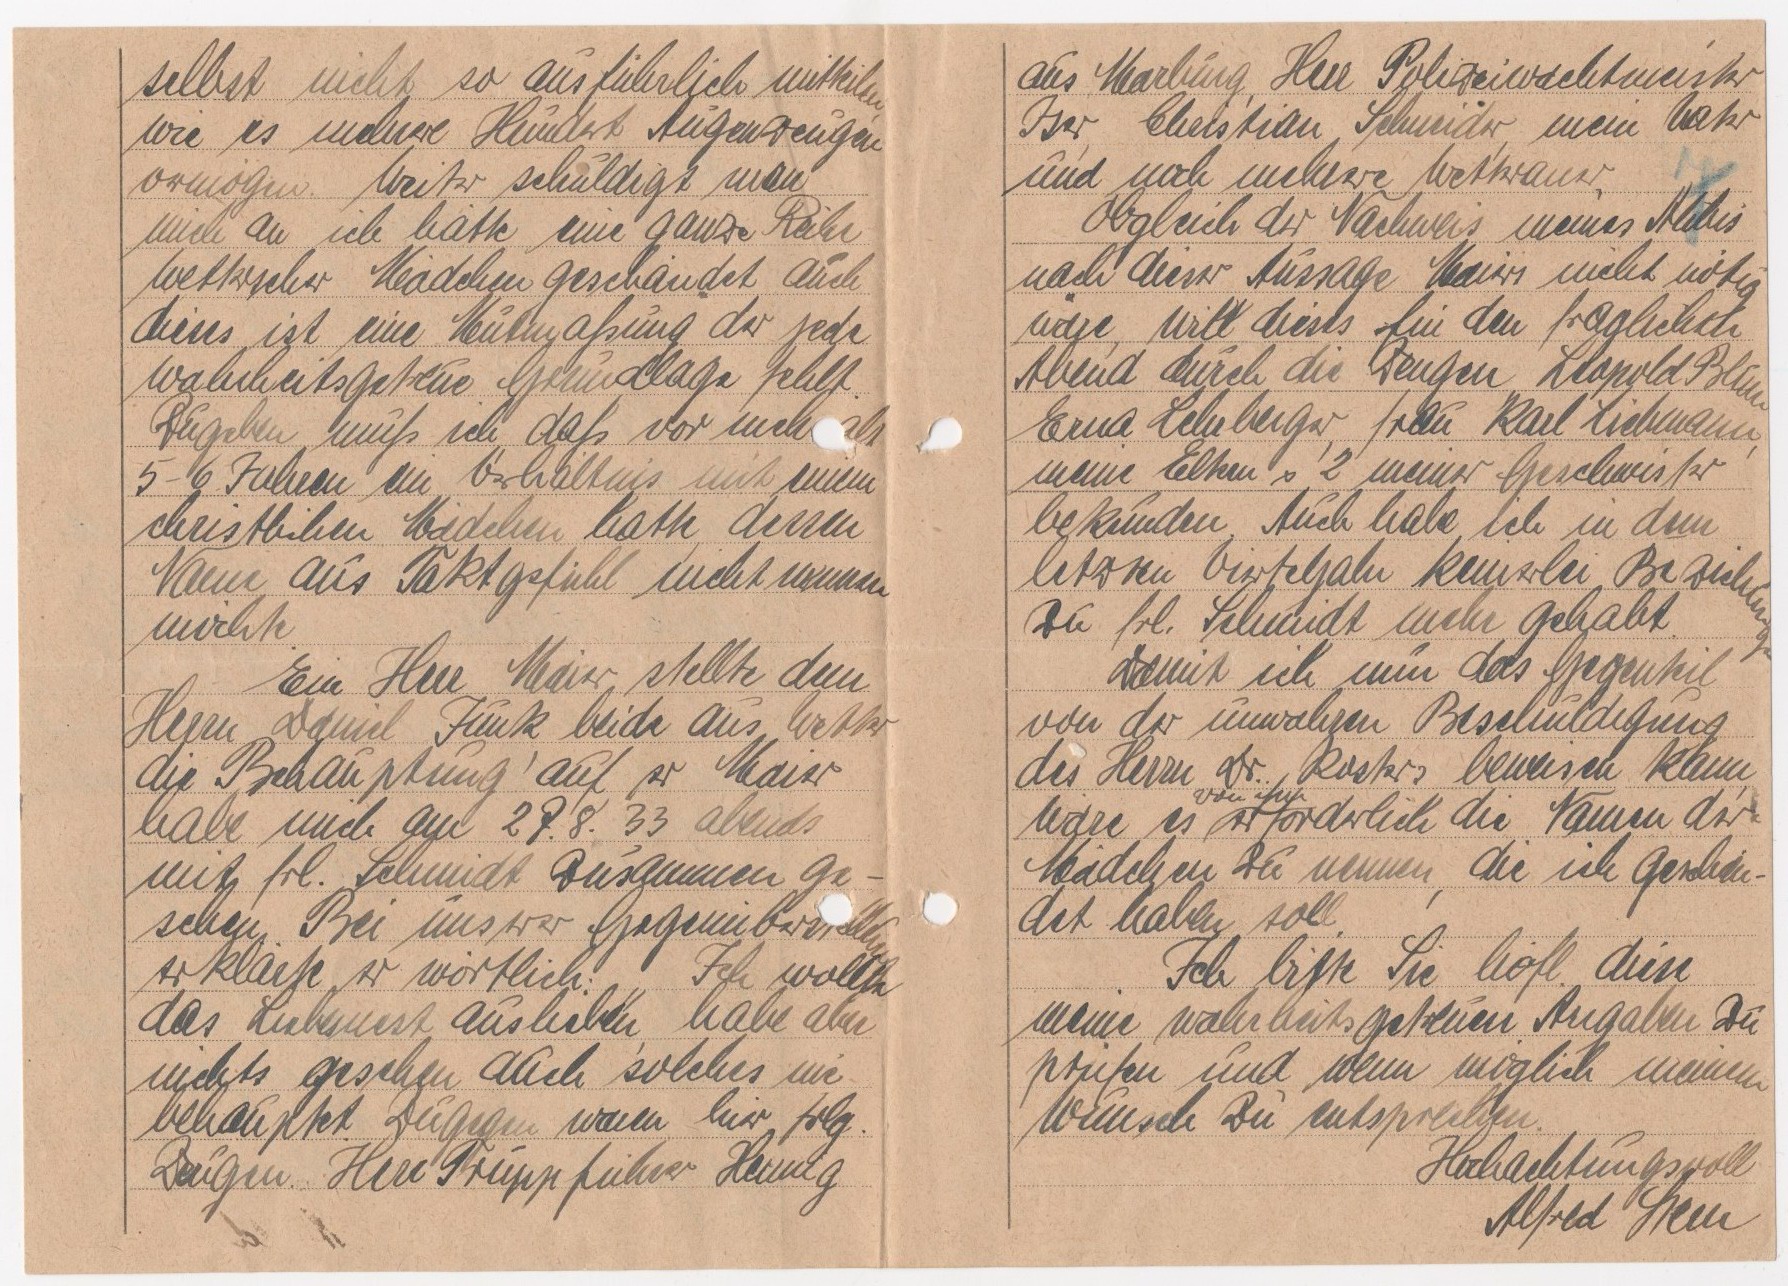 selbst nicht so ausführlich mitteilen
wie es mehrere Hundert Augenzeugen
vermögen. Weiter schuldigt man
mich an ich hätte eine ganze Reihe
Wetterscher Mädchen geschändet auch
dieses ist eine Mutmaßung der jede
wahrheitsgetreue Grundlage fehlt.
Zugeben muß ich, daß vor mehr als
5-6 Jahren ein Verhältnis mit einem
christlichen Mädchen hatte, dessen
Name aus Taktgefühl nicht nennen
möchte
Ein Herr Maier stellte dem
Herrn Daniel Funk beide aus Wetter
die Behauptung auf er Maier
habe mich am 27.8.33 abends
mit Frl. Schmidt zusammen ge-
sehen. Bei unserer Gegenüberstellung
erklärte er wörtlich: „Ich wollte
das Liebesnest ausheben, habe aber
nichts gesehen auch solches nie
behauptet. Zugegen waren hier folg.
Zeugen. Herr Truppführer Hennig
aus Marburg, Herr Polizeiwachtmeister
Christian Schneider, mein Vater
und noch mehrere Wetteraner.
Obgleich der Nachweis meines Alibis
nach dieser Aussage Maiers nicht nötig
wäre, will dieses für den fraglichen
Abend durch die Zeugen Leopold Blum
Erna Lehrberger, Frau Karl Liebmann,
meine Eltern u 2 meiner Geschwister
bekunden. Auch habe ich in dem
letzten Vierteljahr keinerlei Beziehungen
zu Frl. Schmidt mehr gehabt.
Damit ich nun das Gegenteil
von der unwahren Beschuldigung
des Herrn Dr. beweisen kann,
wäre es von ihm erforderlich die Namen der
Mädchen zu nennen, die ich geschän-
det haben soll.
Ich bitte Sie höfl. diese
meine wahrheitsgetreuen Angaben zu
prüfen und wenn möglich meinem
Wunsch zu entsprechen.
Hochachtungsvoll
Alfred Stern